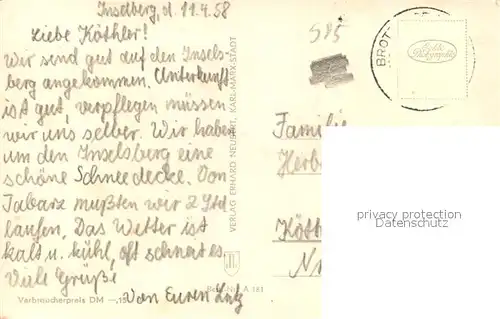 Inselberg, d. 11.4.58
Liebe Köthler!
Wir sind gut auf den Insels-
berg angekommen. Unterkunft
ist gut, verpflegen müssen
wir uns selber. Wir haben
um den Inselsberg eine
schöne Schneedecke. Von
Tabarz mußten wir 2 Std
laufen. Das Wetter ist
kalt u. kühl, oft schneit es
Viele Grüße
Von Euren Lutz
Verbraucherpreis DM
A 183
VERLAG ERHARD NEUBERT, KARL-MARX-STADT
585
BROT
Familie
Herbe
Köth
privacy protection
Datenschutz